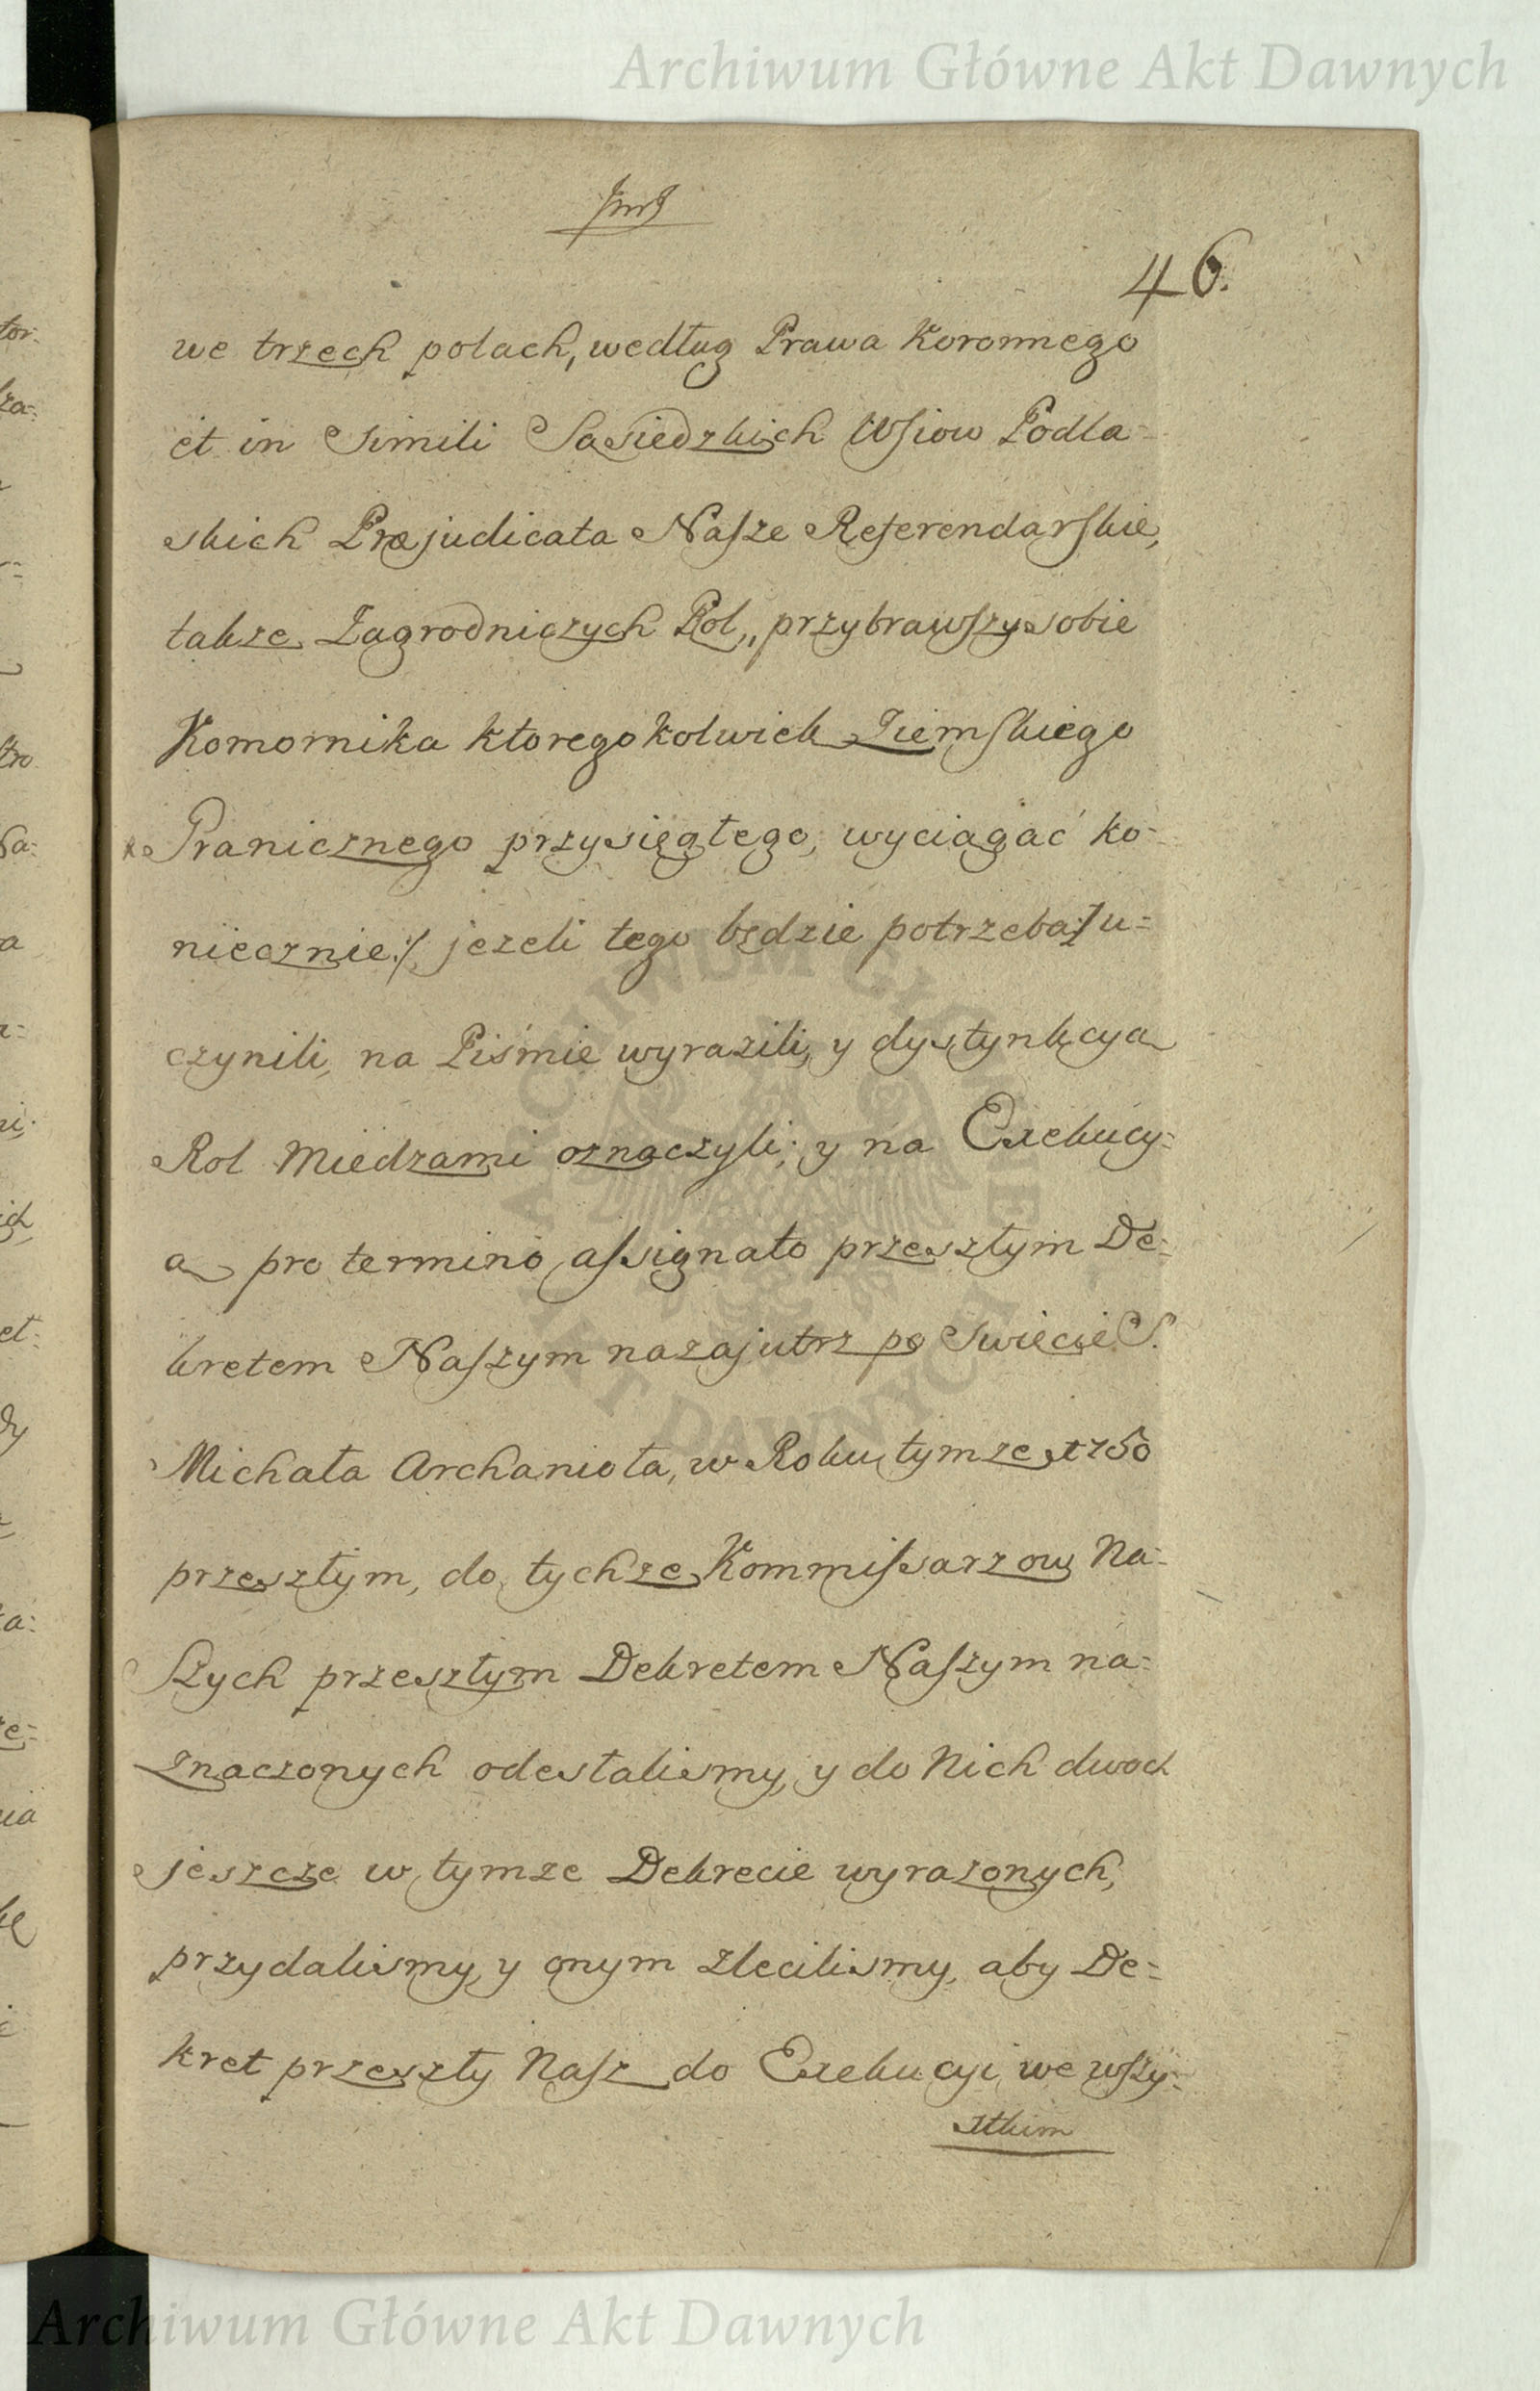 Archiwum Główne Akt Dawnych
46.
we trzech polach, według Prawa Koronnego
et in Simili Sąsiedzkich Wsiow Podla=
skich Præjudicata Nasze Referendarskie,
także Zagrodniczych Rol, przybrawszy sobie
Komornika ktoregokolwiek Ziemskiego
Granicznego przysięgłego, wyciągać ko=
niecznie :/ jeżeli tego będzie potrzeba :/ u=
czynili, na Piśmie wyrazili, y dystynkcyą
Rol Miedzami oznaczyli; y na Exekucy=
ą pro termino assignato przeszłym De=
kretem Naszym nazajutrz po Swięcie S.
Michała Archanioła, w Roku tymże 1750
przeszłym, do tychże Kommissarzow Na=
szych przeszłym Dekretem Naszym na=
znaczonych odesłalismy, y do Nich dwoch
jeszcze w tymże Dekrecie wyrażonych,
przydalismy, y onym zlecilismy, aby De=
kret przeszły Nasz do Exekucyi we wszy=
stkim
ARCHIWUM GŁÓWNE AKT DAWNYCH
Archiwum Główne Akt Dawnych